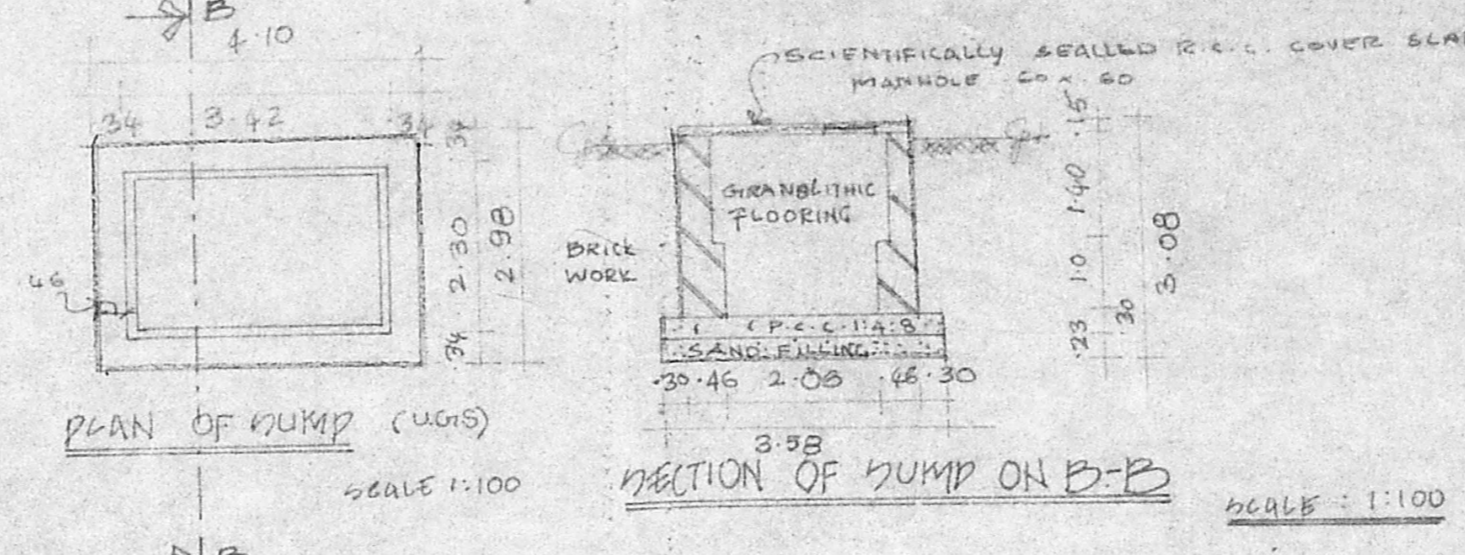 B
4.10
.34 3.42 .34
.34
2.30
2.98
.34
46
PLAN OF SUMP (U.G.S)
SCALE 1:100
B
SCIENTIFICALLY SEALLED R.C.C. COVER
MANHOLE 60 x 60
GRANOLITHIC
FLOORING
BRICK
WORK
P.C.C. 1:4:8
SAND FILLING
.30 .46 2.08 .46 .30
3.58
.15
1.40
1.0
3.08
30
.23
SECTION OF SUMP ON B-B
SCALE : 1:100